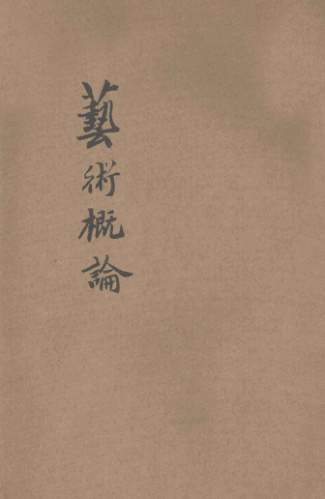 藝術概論